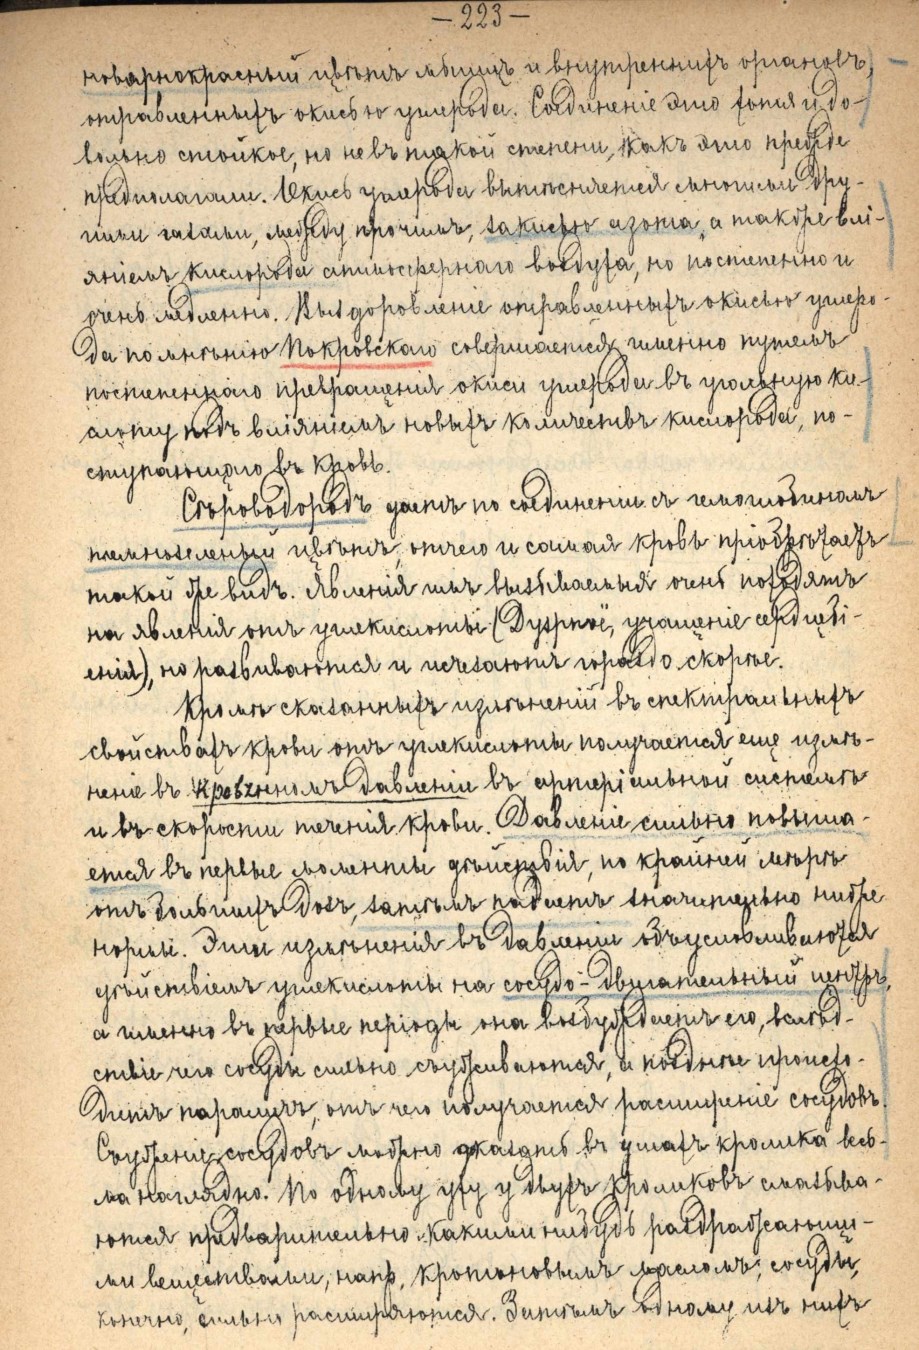 — 223 —
новарнокрасный цвѣтъ мышцъ и внутреннихъ органовъ,
отравленныхъ окисью углерода. Соединеніе это хотя и до-
вольно стойкое, но не въ такой степени, какъ это прежде
предполагали. Окись углерода вытѣсняется многими дру-
гими газами, между прочимъ, закисью азота, а также влі-
яніемъ кислорода атмосфернаго воздуха, но постепенно и
очень медленно. Выздоровленіе отравленныхъ окисью углеро-
да по мнѣнію Покровскаго совершается именно путемъ
постепеннаго превращенія окиси углерода въ угольную ки-
слоту подъ вліяніемъ новыхъ количествъ кислорода, по-
ступающаго въ кровь.
Сѣроводородъ даетъ по соединеніи съ гемоглобиномъ
темнозеленый цвѣтъ, отчего и самая кровь пріобрѣтаетъ
такой же видъ. Явленія имъ вызываемыя очень походятъ
на явленія отъ углекислоты (Dyspnoë, учащеніе сердцебі-
енія), но развиваются и исчезаютъ гораздо скорѣе.
Кромѣ сказанныхъ измѣненій въ спектральныхъ
свойствахъ крови отъ углекислоты получается еще измѣ-
неніе въ кровяномъ давленіи въ артеріальной системѣ
и въ скорости теченія крови. Давленіе сильно повыша-
ется въ первые моменты дѣйствія, по крайней мѣрѣ
отъ большихъ дозъ, затѣмъ падаетъ значительно ниже
нормы. Эти измѣненія въ давленіи обусловливаются
дѣйствіемъ углекислоты на сосудо-двигательный центръ,
а именно въ первые періоды она возбуждаетъ его, вслѣд-
ствіе чего сосуды сильно съуживаются, а позднѣе происхо-
дитъ параличъ, отъ чего получается расширеніе сосудовъ.
Съуженіе сосудовъ можно доказать въ ушахъ кролика весь-
ма наглядно. По одному уху у двухъ кроликовъ смазыва-
ются предварительно какими нибудь раздражающи-
ми веществами, напр. кротоновымъ масломъ; сосуды,
конечно, сильно расширяются. Затѣмъ одному изъ нихъ